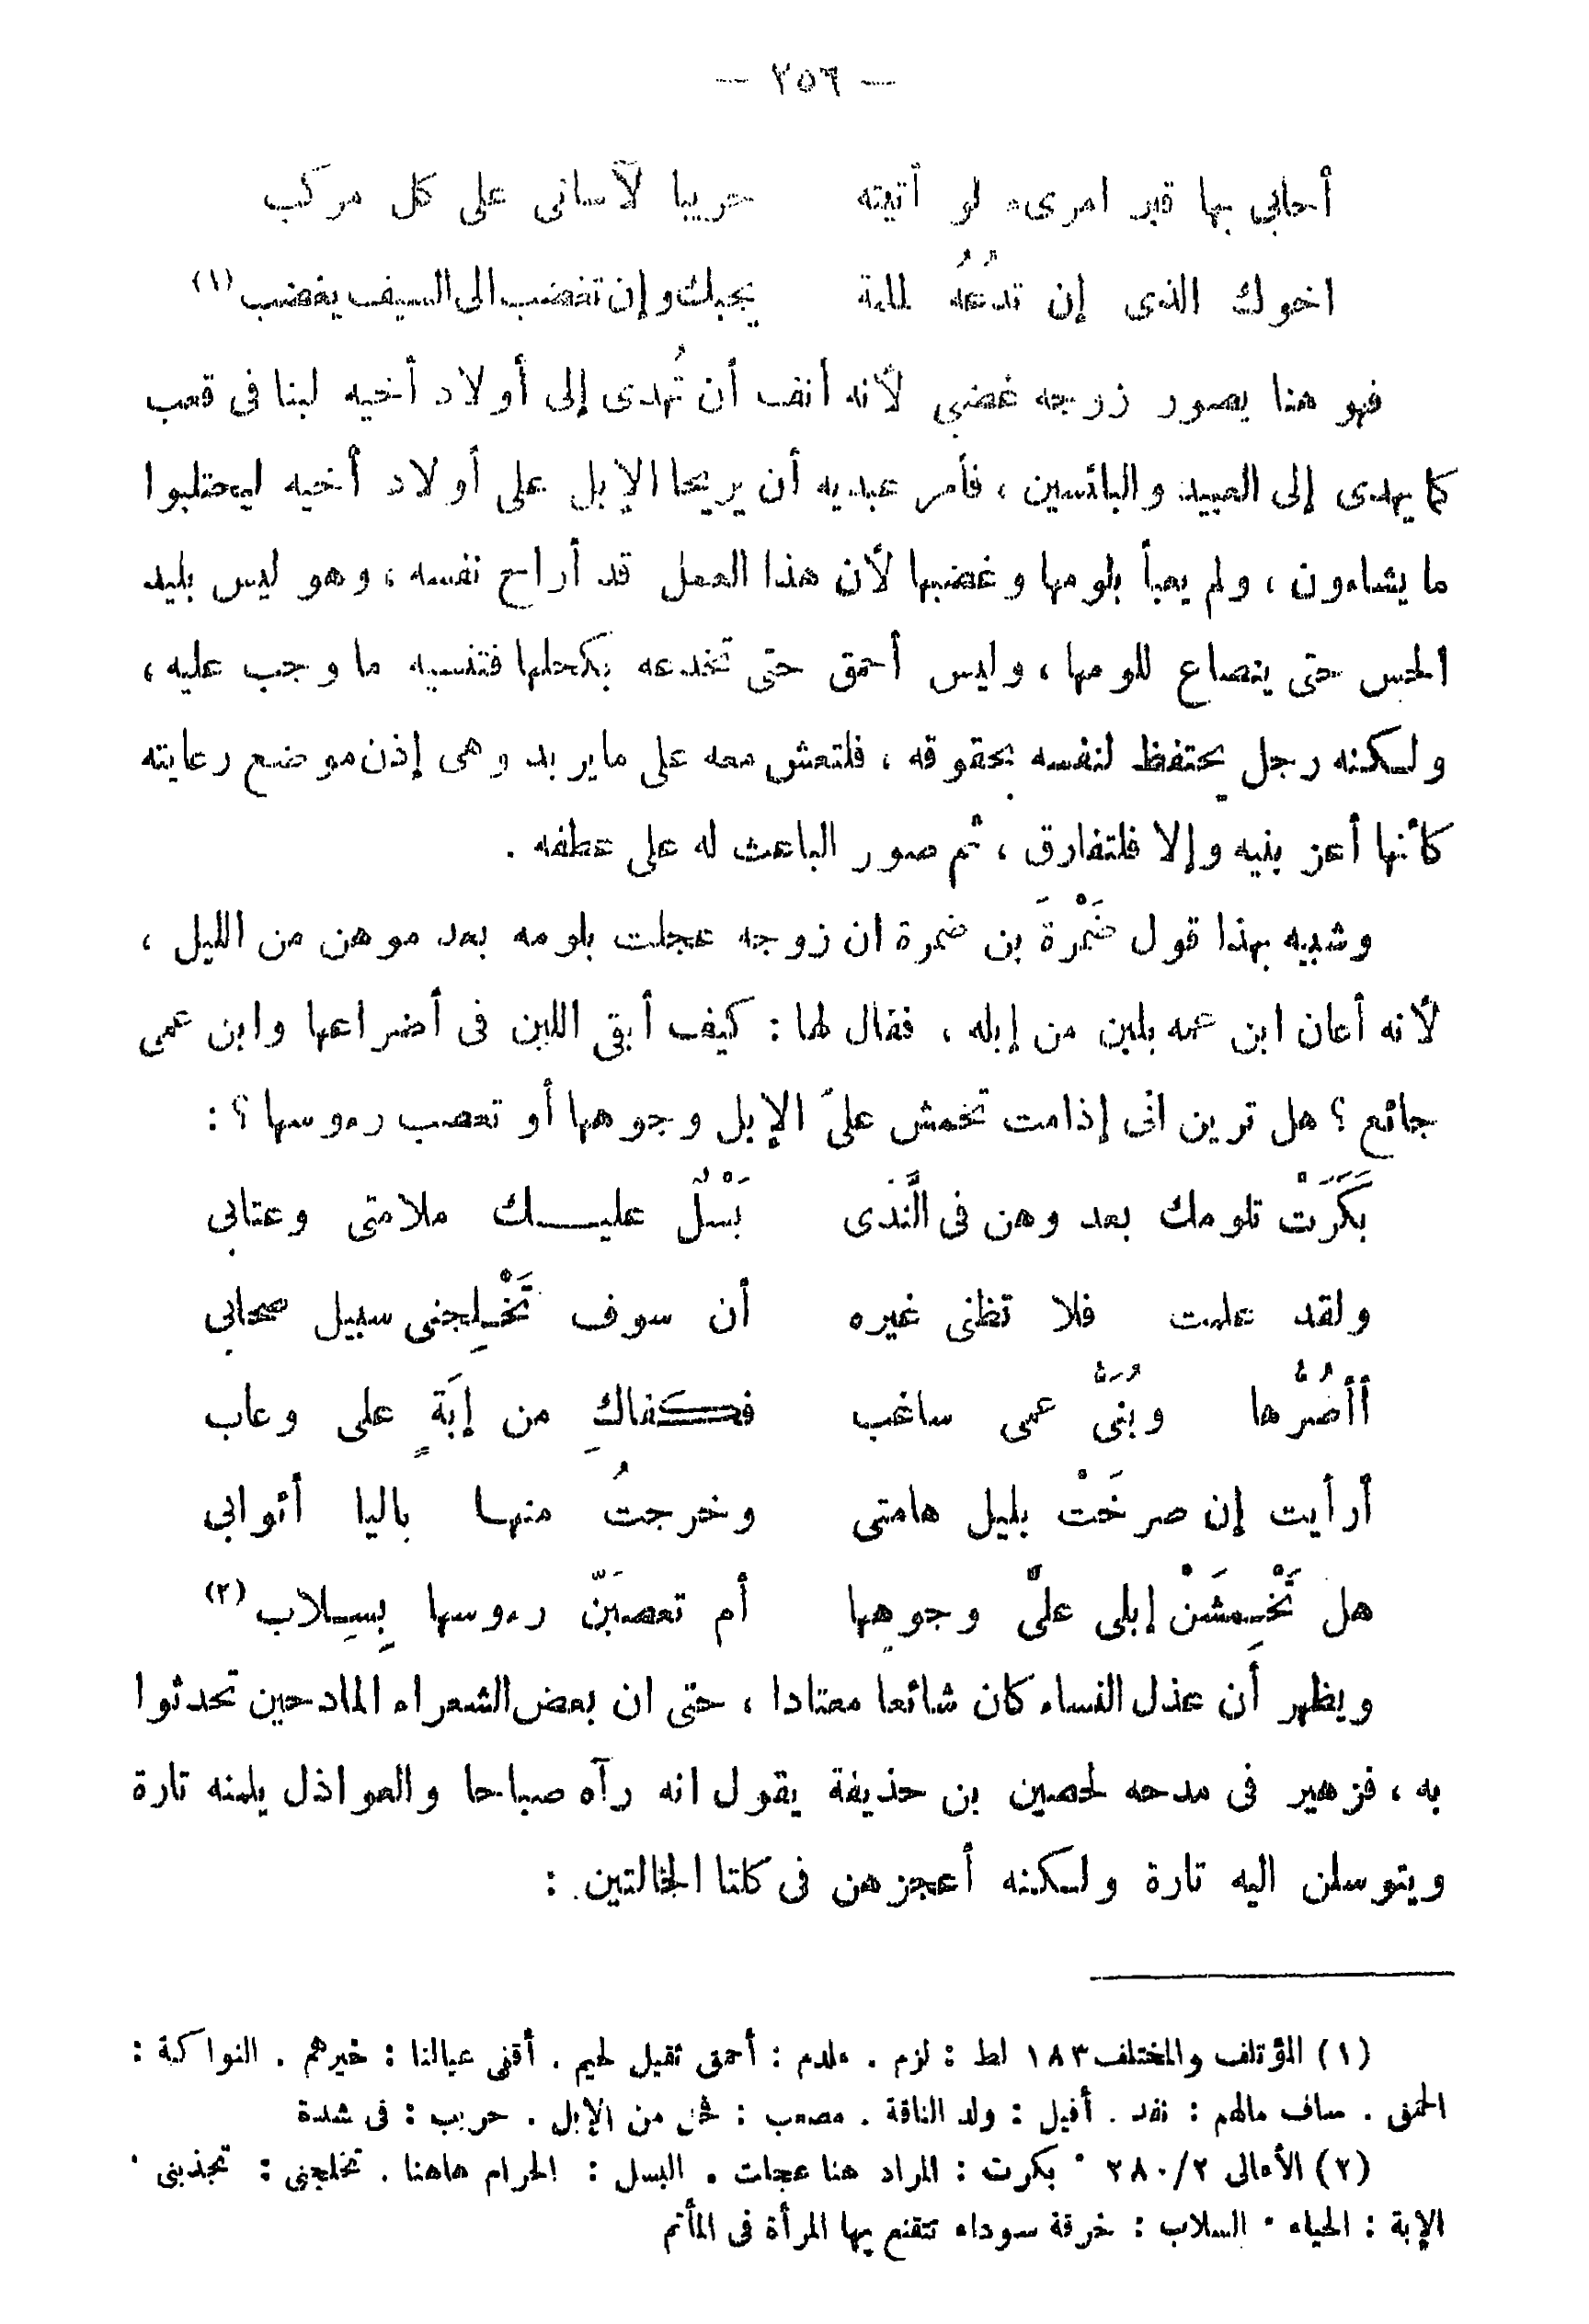 — ٢٥٦ —
أحابى بها قبر امرىء لو أتيته حريبا لآسانى على كل مركب
اخوك الذى إن تدعُه لملمة يجبك وإن تغضب الى السيف يغضب (١)
فهو هنا يصور زوجه غضبى لأنه أنف أن تُهدى إلى أولاد أخيه لبنا فى قعب
كما يهدى إلى العبيد والبائسين ، فأمر عبديه أن يريحا الإبل على أولاد أخيه ليحتلبوا
ما يشاءون ، ولم يعبأ بلومها وغضبها لأن هذا العمل قد أراح نفسه ، وهو ليس بليد
الحس حتى ينصاع للومها ، وليس أحمق حتى تخدعه بكحلها فتنسيه ما وجب عليه ،
ولكنه رجل يحتفظ لنفسه بحقوقه ، فلتعش معه على مايريد وهى إذن موضع رعايته
كأنها أعز بنيه وإلا فلتفارق ، ثم صور الباعث له على عطفه .
وشبيه بهذا قول ضَمْرةَ بن ضمرة ان زوجه عجلت بلومه بعد موهن من الليل ،
لأنه أعان ابن عمه بلبن من إبله ، فقال لها : كيف أبقى اللبن فى أضراعها وابن عمى
جائع ؟ هل ترين انى إذامت تخمش علىّ الإبل وجوهها أو تعصب رءوسها ؟ :
بَكَرَتْ تلومك بعد وهن فى النَّدى بَسْلٌ عليك ملامتى وعتابى
ولقد علمت فلا تظنى غيره أن سوف تَخْلِجنى سبيل صحابى
أأضُرُّها وبُنَىُّ عمى ساغب فكفاكِ من إبَةٍ على وعاب
أرأيت إن صرخَتْ بليل هامتى وخرجتُ منها باليا أثوابى
هل تَخْمِشَنْ إبلى علىّ وجوهها أم تعصبَنّ رءوسها بِسِلاب (٢)
ويظهر أن عذل النساء كان شائعا معتادا ، حتى ان بعض الشعراء المادحين تحدثوا
به ، فزهير فى مدحه لحصين بن حذيفة يقول انه رآه صباحا والعواذل يلمنه تارة
ويتوسلن اليه تارة ولكنه أعجزهن فى كلتا الخالتين :
(١) المؤتلف والمختلف ١٨٣ لط : لزم . ملدم : أحمق ثقيل لحيم . أقنى عيالنا : خيرهم . النواكة :
الحمق . ساف مالهم : نفد . أفيل : ولد الناقة . مصعب : فحل من الإبل . حريب : فى شدة
(٢) الأمالى ٢٨٠/٢ . بكرت : المراد هنا عجلت . البسل : الحرام هاهنا . تخلجنى : تجذبنى .
الإبة : الحياء . السلاب : خرقة سوداء تتقنع بها المرأة فى المأتم